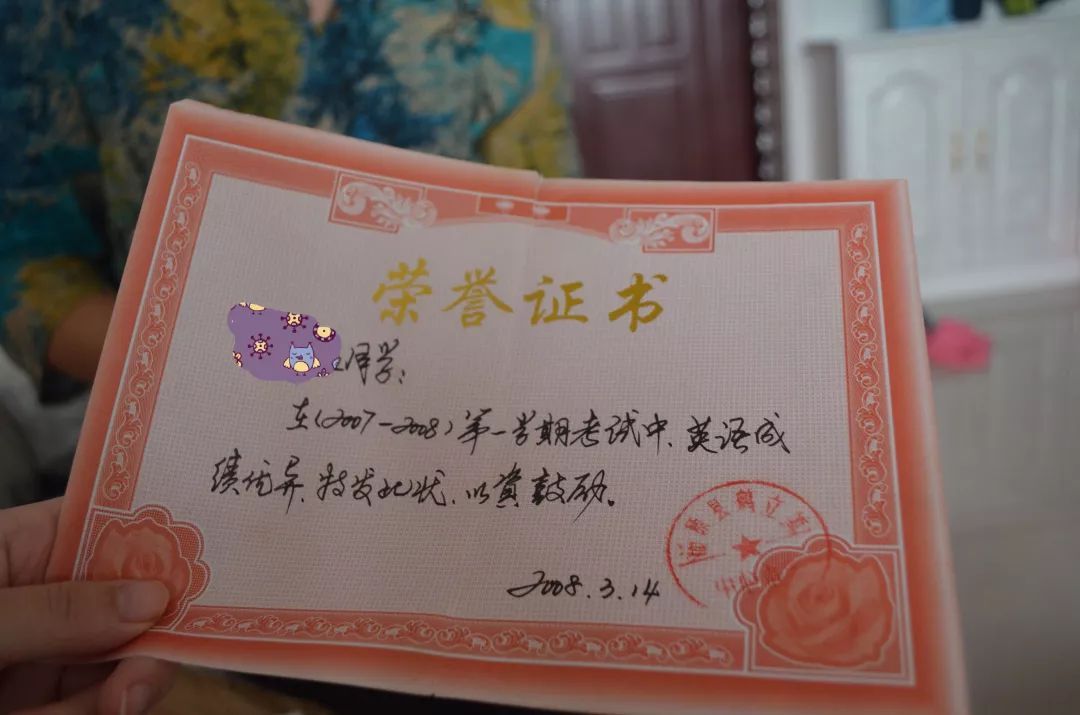 荣誉证书
同学:
在(2007-2008)第一学期考试中、英语成
绩优异、特发此状、以资鼓励。
2008.3.14
县鹤立